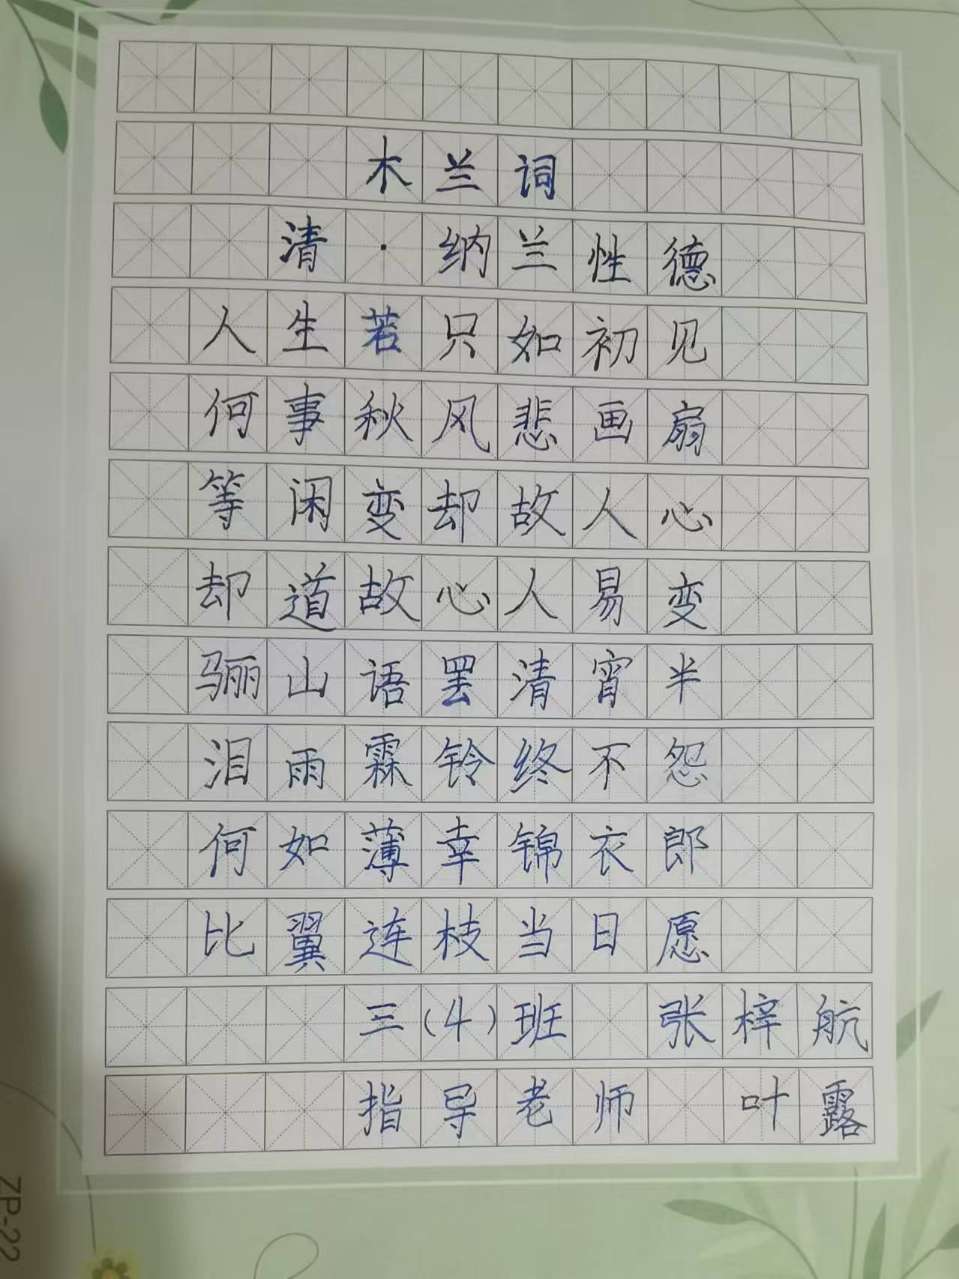 木兰词
清·纳兰性德
人生若只如初见
何事秋风悲画扇
等闲变却故人心
却道故心人易变
骊山语罢清宵半
泪雨霖铃终不怨
何如薄幸锦衣郎
比翼连枝当日愿
三(4)班 张梓航
指导老师 叶露
ZP-22